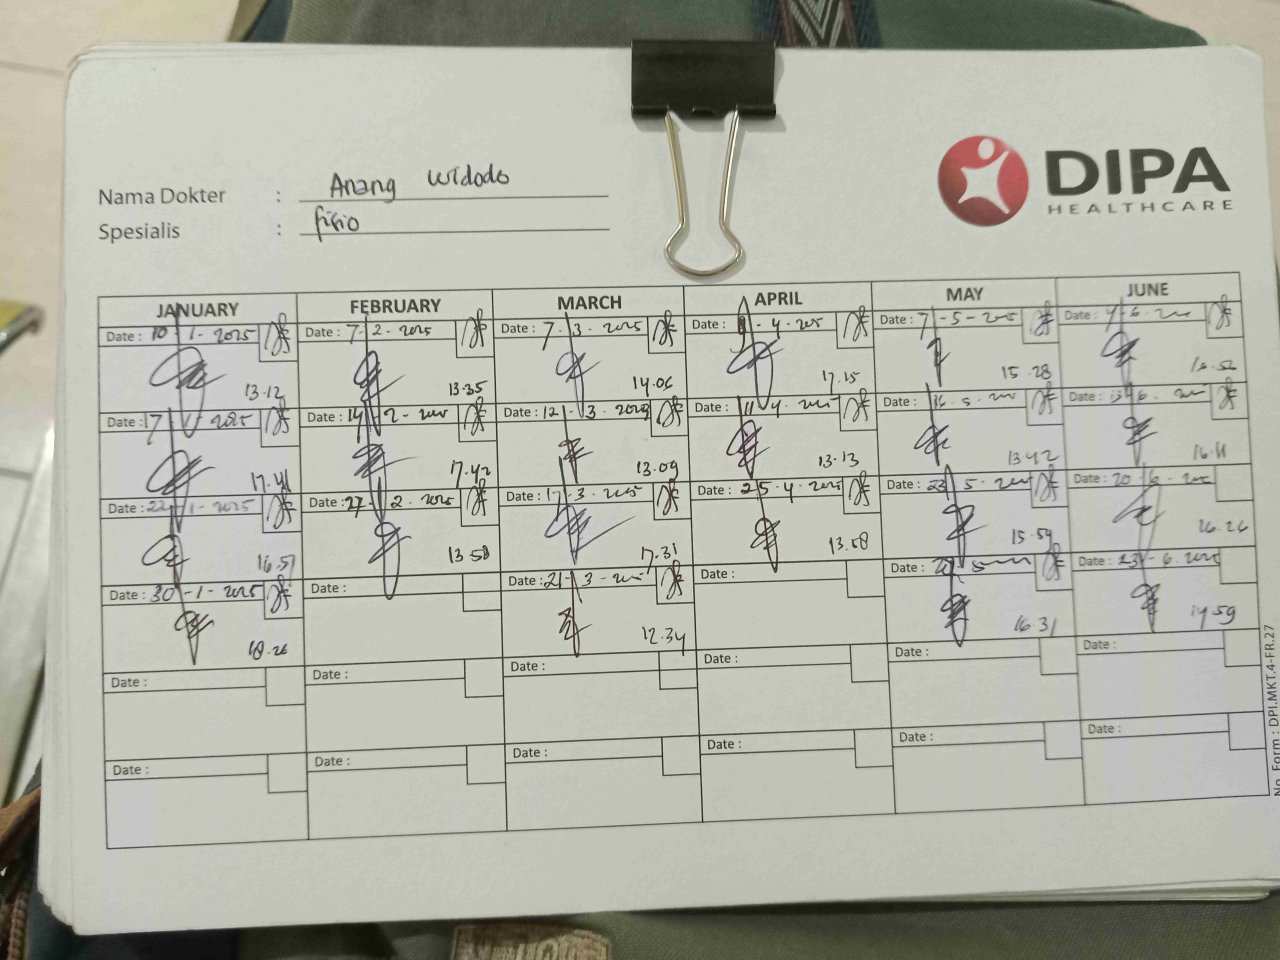 DIPA
HEALTHCARE
Nama Dokter : Anang Widodo
Spesialis : fisio
JANUARY FEBRUARY MARCH APRIL MAY JUNE
Date : 10-1-2025 Date : 7-2-2025 Date : 7-3-2025 Date : -4-2025 Date : 7-5-2025 Date :
13.12 13.35 14.06 17.15 15.28
Date : 17-1-2025 Date : 14-2-2025 Date : 12-3-2025 Date : 11-4-2025 Date : 16-5-2025 Date :
17.41 17.42 13.09 13.13 13.42 16.11
Date : -1-2025 Date : 27-2-2025 Date : 17-3-2025 Date : 25-4-2025 Date : 23-5-2025 Date : 20-6-2025
16.51 13.58 17.31 13.58 15.59 16.26
Date : 30-1-2025 Date : Date : 21-3-2025 Date : Date : Date : 23-6-2025
18.26 12.34 16.31
Date : Date : Date : Date : Date : Date :
Date : Date : Date : Date : Date : Date :
No. Form : DPI.MKT.4-FR.27